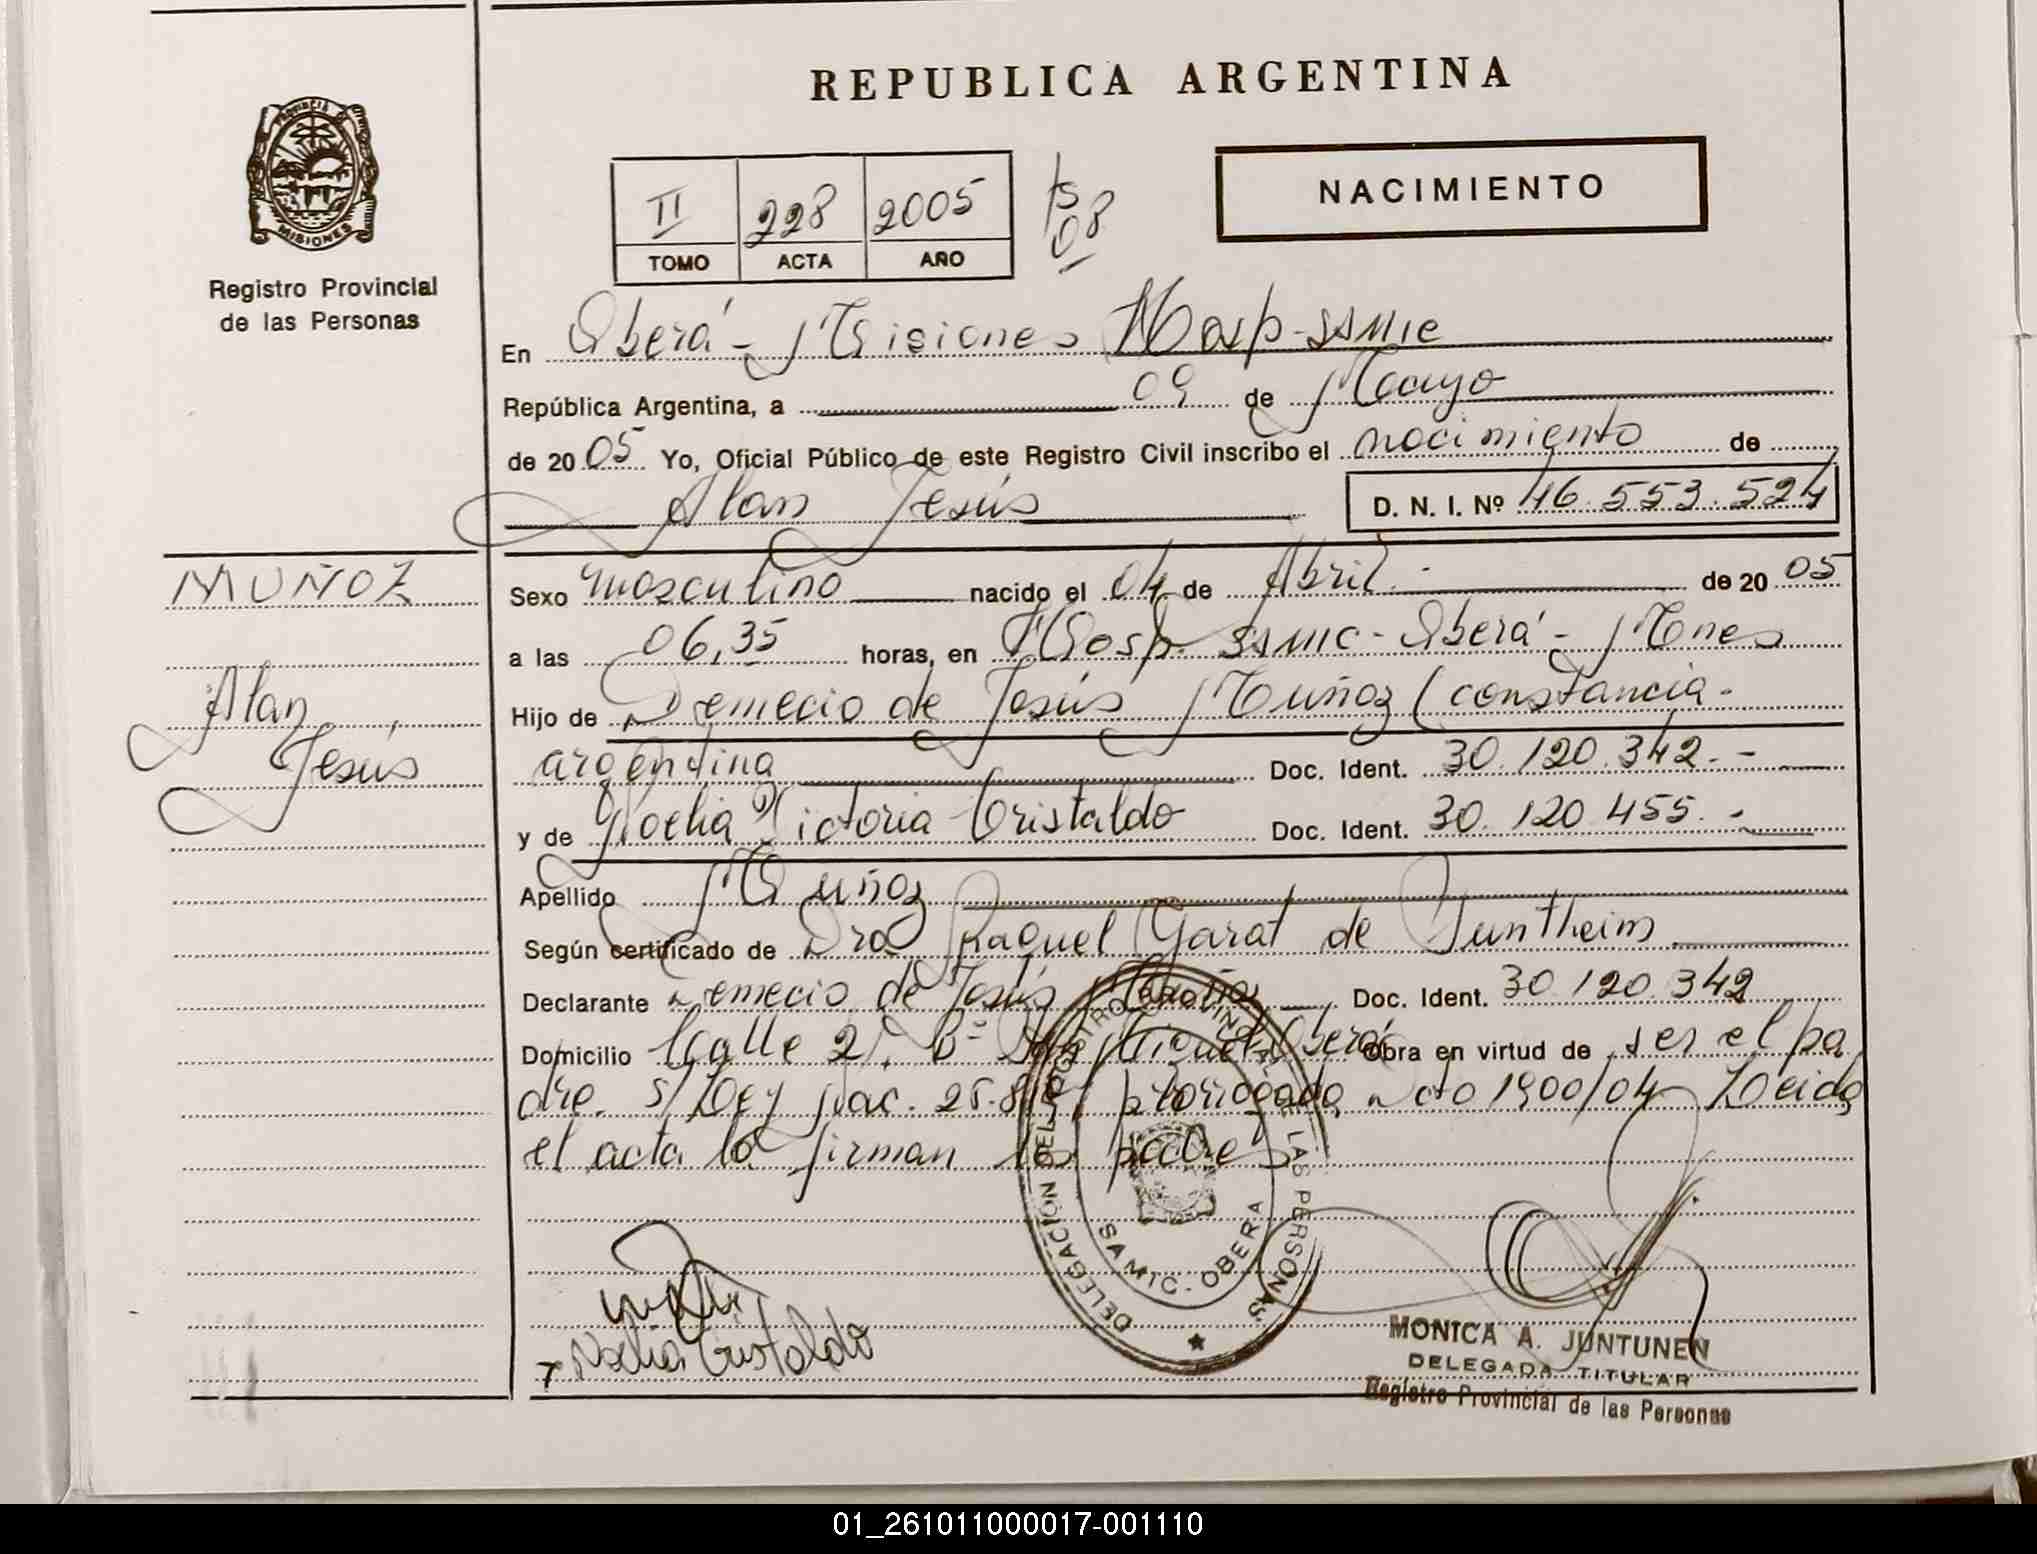 REPUBLICA ARGENTINA
PROVINCIA DE
MISIONES
Registro Provincial
de las Personas
II 228 2005
TOMO ACTA AÑO
08
NACIMIENTO
En Oberá - Misiones Hosp-SAMIC
República Argentina, a 09 de Mayo
de 2005 Yo, Oficial Público de este Registro Civil inscribo el nacimiento de
Alan Jesús D. N. I. Nº 46.553.524
MUÑOZ
Alan
Jesús
Sexo masculino nacido el 04 de Abril.- de 2005
a las 06,35 horas, en Hosp. SAMIC - Oberá - Mnes
Hijo de Demecio de Jesús Muñoz (constancia.
argentina Doc. Ident. 30.120.342.-
y de Noelia Victoria Cristaldo Doc. Ident. 30.120.455.-
Apellido Muñoz
Según certificado de Dra Raquel Garat de Juntheim
Declarante Demecio de Jesús Muñoz Doc. Ident. 30.120.342
Domicilio Calle 2, Bº San Miguel Oberá Obra en virtud de ser el pa
dre. s/Ley Nac. prorrogada Dcto 1900/04 Leida
el acta la firman los padres
DELEGACIÓN DEL REGISTRO PROVINCIAL DE LAS PERSONAS
SAMIC. OBERA
Noelia Cristaldo
MONICA A. JUNTUNEN
DELEGADA TITULAR
Registro Provincial de las Personas
01_261011000017-001110